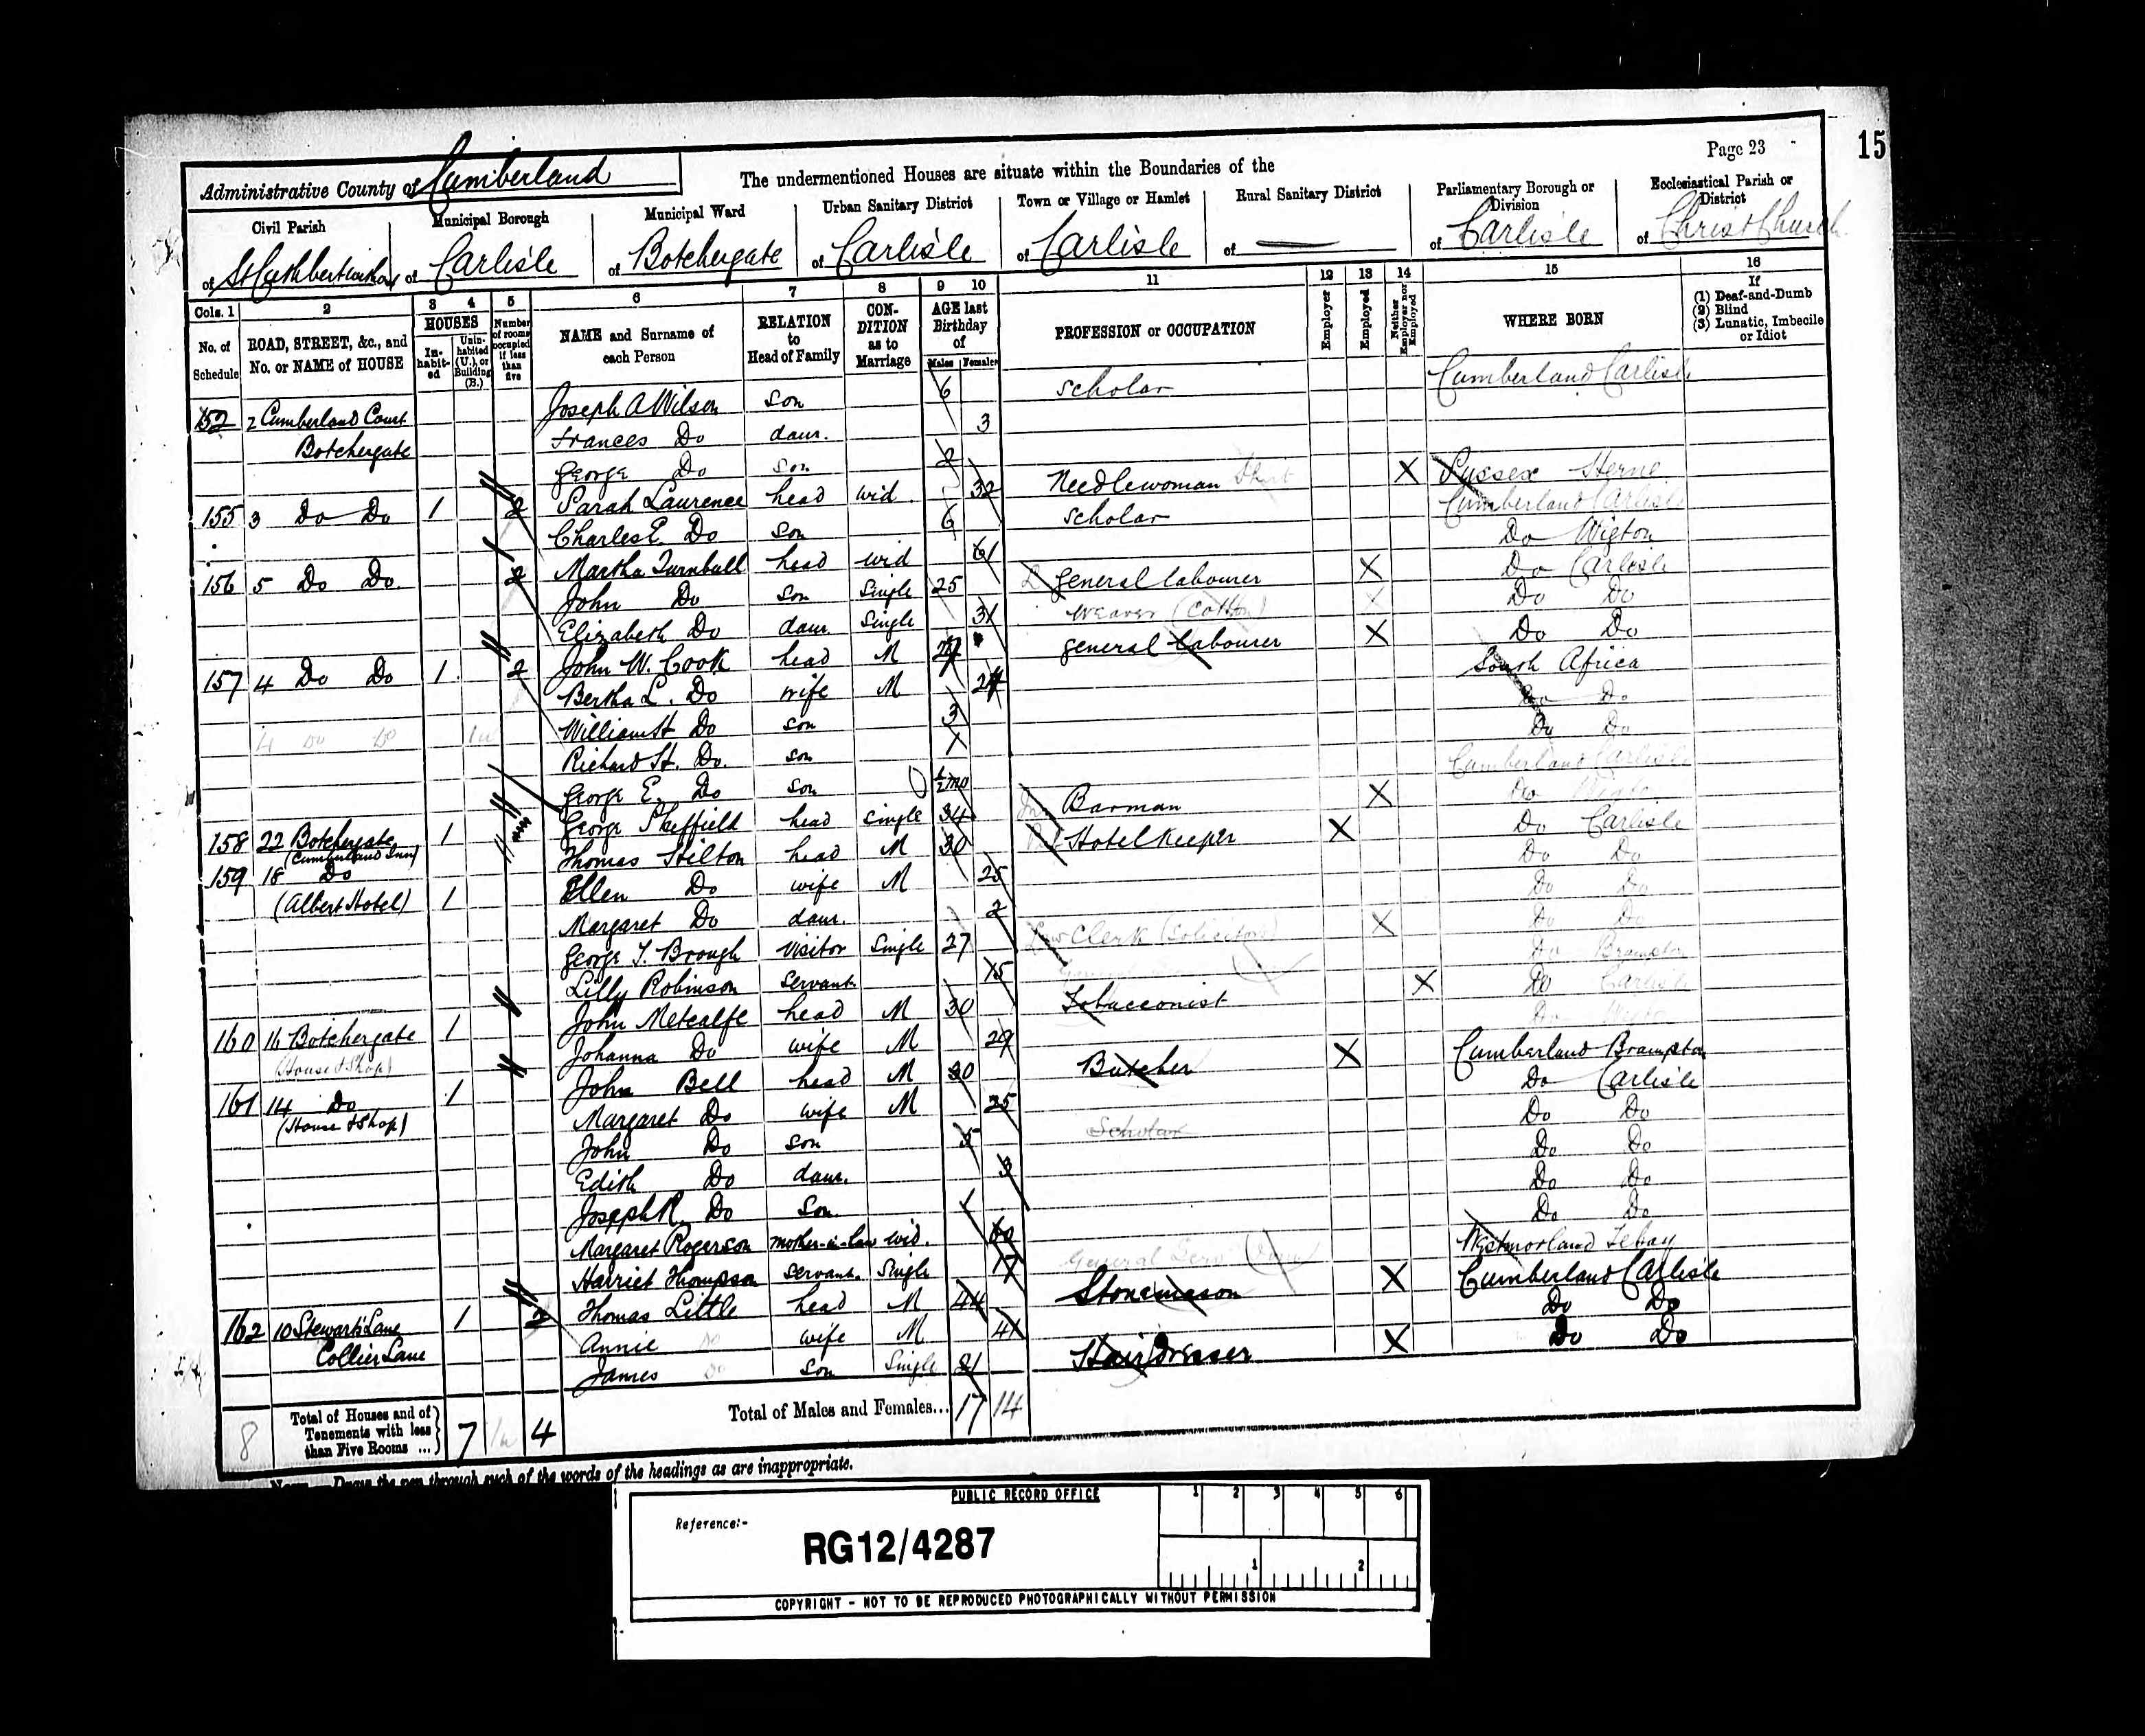 Page 23
15
Administrative County of Cumberland
The undermentioned Houses are situate within the Boundaries of the
Civil Parish
Municipal Borough
Municipal Ward
Urban Sanitary District
Town or Village or Hamlet
Rural Sanitary District
Parliamentary Borough or Division
Ecclesiastical Parish or District
of St Cuthbert
of Carlisle
of Botchergate
of Carlisle
of Carlisle
of
of Carlisle
of Christ Church
Cols. 1 2 3 4 5 6 7 8 9 10 11 12 13 14 15 16
No. of Schedule
ROAD, STREET, &c., and No. or NAME of HOUSE
HOUSES
Inhabited
Uninhabited (U.), or Building (B.)
Number of rooms occupied if less than five
NAME and Surname of each Person
RELATION to Head of Family
CONDITION as to Marriage
AGE last Birthday of
Males Females
PROFESSION or OCCUPATION
Employer
Employed
Neither Employer nor Employed
WHERE BORN
If
(1) Deaf-and-Dumb
(2) Blind
(3) Lunatic, Imbecile or Idiot
152 2 Cumberland Court Joseph A Wilson son 6 scholar Cumberland Carlisle
Botchergate Frances Do daur. 3
George Do son 2
155 3 Do Do 1 2 Sarah Laurence head wid. 32 Needlewoman X Sussex
Charles E. Do son 6 scholar Cumberland Carlisle
156 5 Do Do 2 Martha Turnbull head wid 61 Do Wigton
John Do son Single 25 general labourer X Do Carlisle
Elizabeth Do daur. Single 31 Weaver (Cotton) X Do Do
157 4 Do Do 1 2 John W. Cook head M general labourer X Do Do
Bertha L. Do wife M South Africa
4 Do Do William H Do son 3 Do Do
Richard H. Do. son 1 Do Do
George E. Do son ½ mo Cumberland Carlisle
158 22 Botchergate 1 George Sheffield head single 34 Barman X Do
(Cumberland Inn)
159 18 Do Thomas Hilton head M 30 Hotel Keeper X Do Carlisle
(Albert Hotel) 1 Ellen Do wife M 25 Do Do
Margaret Do daur. 2 Do Do
George T. Brough Visitor Single 27 Law Clerk (Solicitors) X Do Do
Lilly Robinson servant 15 Do Brampton
160 16 Botchergate 1 John Metcalfe head M 30 Tobacconist X Do Carlisle
(House & Shop) Johanna Do wife M 29 Do
161 14 Do 1 John Bell head M 30 Butcher X Cumberland Brampton
(House & Shop) Margaret Do wife M 25 Do Carlisle
John Do son 5 Scholar Do Do
Edith Do daur. 3 Do Do
Joseph R. Do Son 1 Do Do
Margaret Rogerson mother-in-law wid. 60 Do Do
Harriet Thompson servant. Single 17 General Serv Westmorland Tebay
162 10 Stewarts Lane 1 2 Thomas Little head M 44 Stonemason X Cumberland Carlisle
Collier Lane Annie Do wife M 41 Do Do
James Do son Single 21 Hair Dresser X Do Do
8
Total of Houses and of Tenements with less than Five Rooms ... 7 4
Total of Males and Females... 17 14
Draw the pen through such of the words of the headings as are inappropriate.
PUBLIC RECORD OFFICE
1 2 3 4 5 6
Reference:-
RG12/4287
1 2
COPYRIGHT - NOT TO BE REPRODUCED PHOTOGRAPHICALLY WITHOUT PERMISSION